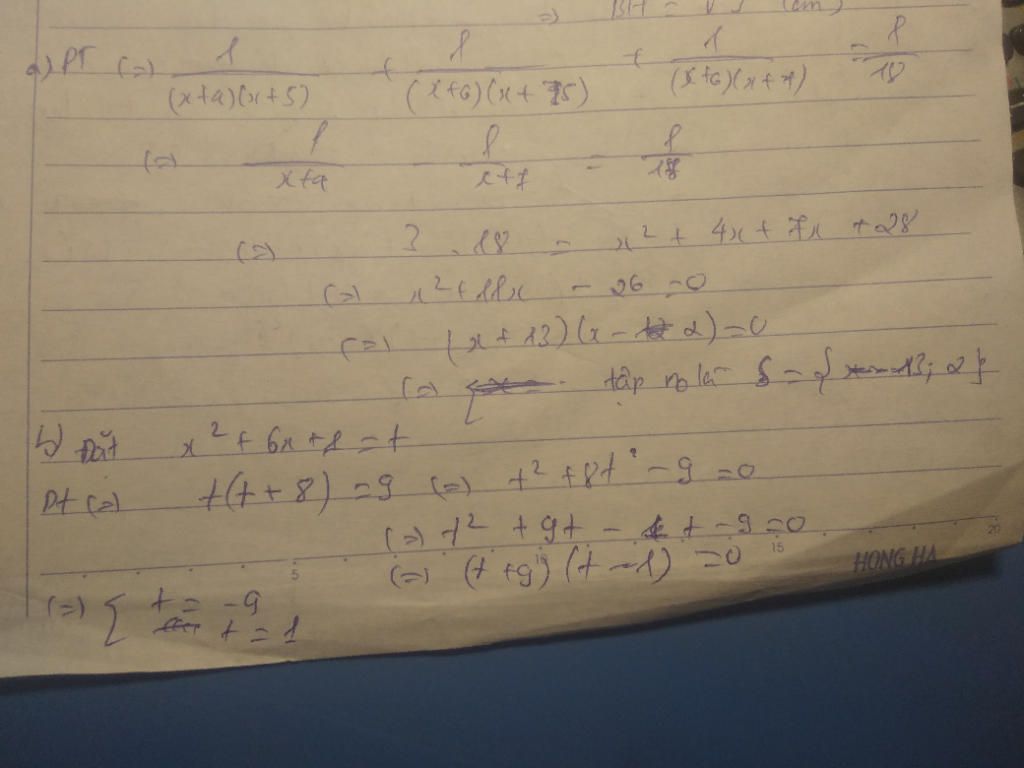 => BH = √5 (cm)
a) PT (=) 1/((x+4)(x+5)) + 1/((x+6)(x+5)) + 1/((x+6)(x+7)) = 1/18
(=) 1/(x+4) - 1/(x+7) = 1/18
(=) 3 . 18 = x² + 4x + 7x + 28
(=) x² + 11x - 26 = 0
(=) (x + 13)(x - 2) = 0
(=) [ tập no là S = { -13; 2}
b) Đặt x² + 6x + 8 = t
Pt (=) t(t + 8) = 9 (=) t² + 8t - 9 = 0
(=) t² + 9t - t - 9 = 0
5 10 15 20
(=) (t + 9)(t - 1) = 0
HONG HA
(=) [ t = -9
t = 1